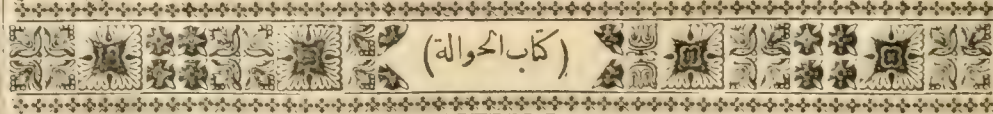 (كتاب الحوالة)